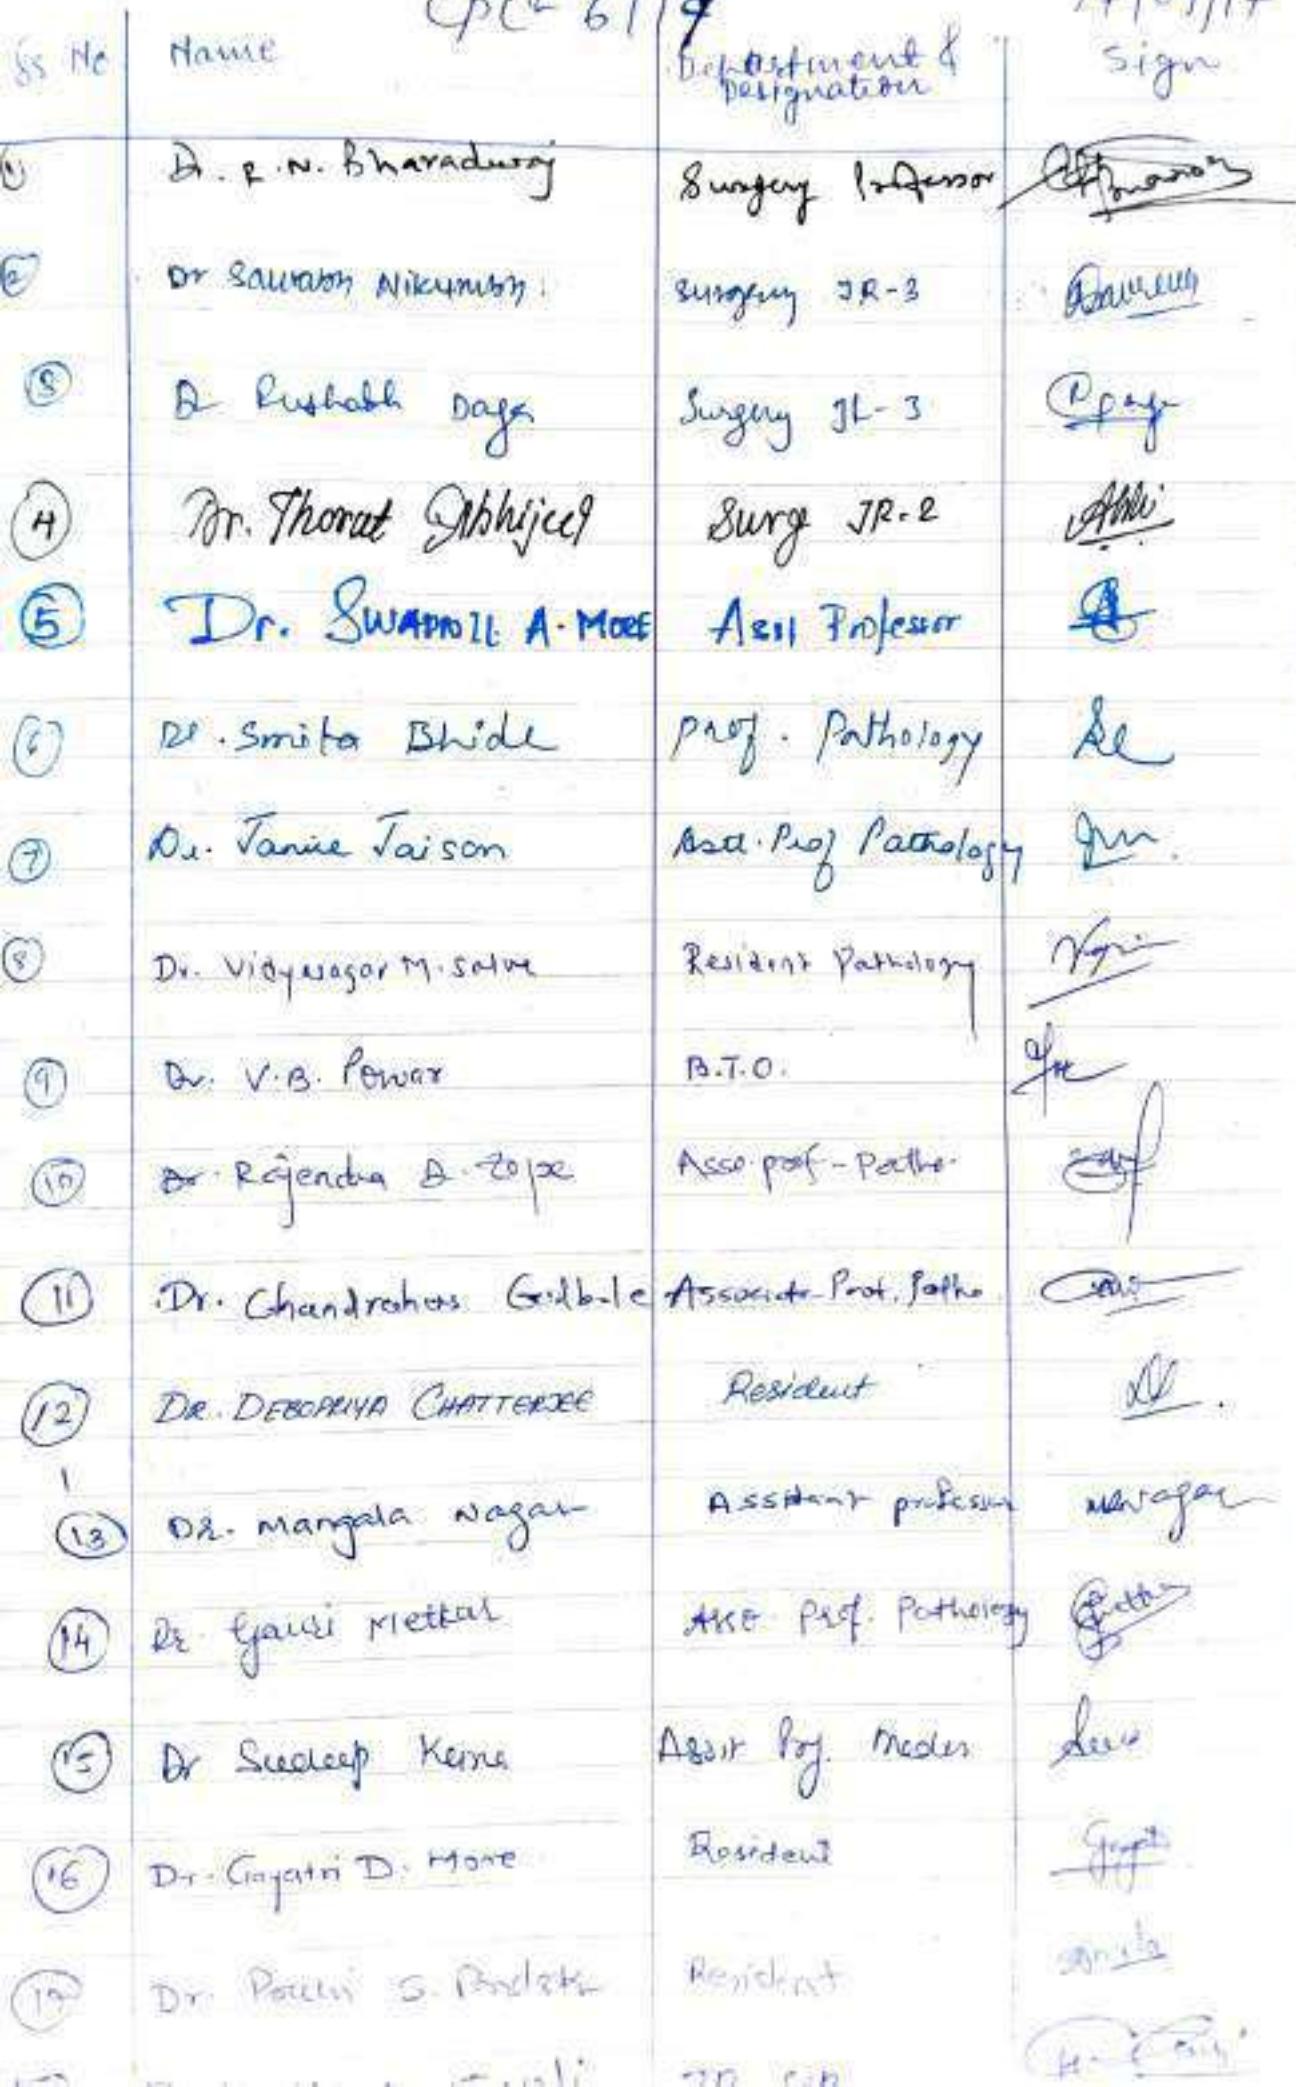 CPC - 6/19
Sr No Name Department & Designation Sign
1 Dr. R.N. Bharadwaj Surgery Professor
2 Dr Saurabh Nikumbh. Surgery JR-3
3 Dr Rushabh Daga Surgery JR-3
4 Dr. Thorat Abhijeet Surge JR-2 Abhi
5 Dr. SWAPNIL A. MORE Asst Professor
6 Dr. Smita Bhide Prof. Pathology
7 Dr. Janice Jaison Asst. Prof Pathology
8 Dr. Vidyasagar M. Salve Resident Pathology
9 Dr. V.B. Powar B.T.O.
10 Dr. Rajendra B. Zope Asso. prof - Patho.
11 Dr. Chandrahas Godbole Associate Prof. Patho
12 DR. DEBOPRIYA CHATTERJEE Resident
13 DR. Mangala Nagar Assistant professor
14 Dr. Gauri Metkar Asst Prof. Pathology
15 Dr Sudeep Asst Prof.
16 Dr. Gayatri D. More Resident
17 Dr. S. Resident